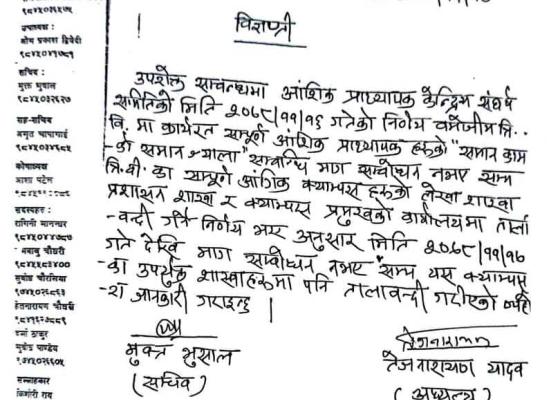 उपाध्यक्ष :
ओम प्रकाश द्विवेदी
सचिव :
मुक्त भुषाल
सह-सचिव
अमृत चापागाई
कोषाध्यक्ष
आशा पटेल
सदस्यहरु :
रागिनी मानन्धर
सुबोध चौरसिया
हेतनारायण चौधरी
सुबोध पाण्डेय
सल्लाहकार
किशोरी राय
विज्ञप्ती
उपरोक्त सम्बन्धमा आंशिक प्राध्यापक केन्द्रिय संघर्ष
समितिको मिति २०६८/११/१६ गतेको निर्णय बमोजीम त्रि.
वि. मा कार्यरत सम्पूर्ण आंशिक प्राध्यापक हरुको "समान काम
-को समान ज्याला" सम्बन्धि माग सम्बोधन नभए सम्म
त्रि.वी. का सम्पूर्ण आंगिक क्याम्पस हरुको लेखा शाखा
प्रशासन शाखा र क्याम्पस प्रमुखको कार्यालयमा ताला
-बन्दी गर्ने निर्णय भए अनुसार मिति २०६८/११/१७
गते देखि माग सम्बोधन नभए सम्म यस क्याम्पस
-का उपर्युक्त शाखाहरुमा पनि तालाबन्दी गरीएको
-रा जानकारी गराइन्छ |
मुक्त भुसाल
(सचिव)
तेजनारायण यादव
(अध्यक्ष)